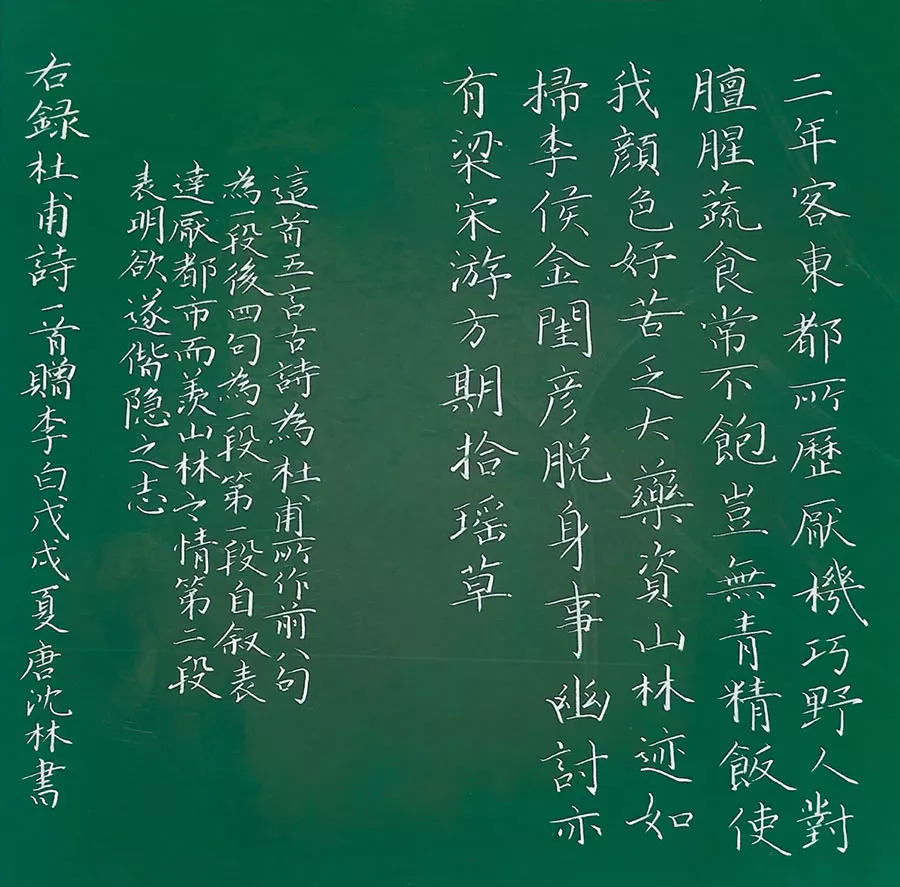 二年客東都所歷厭機巧野人對
膻腥蔬食常不飽豈無青精飯使
我顔色好苦乏大藥資山林迹如
掃李侯金閨彦脱身事幽討亦
有梁宋游方期拾瑶草
這首五言古詩為杜甫所作前八句
為一段後四句為一段第一段自叙表
達厭都市而羨山林之情第二段
表明欲遂偕隐之志
右録杜甫詩一首贈李白戊戌夏唐沈林書